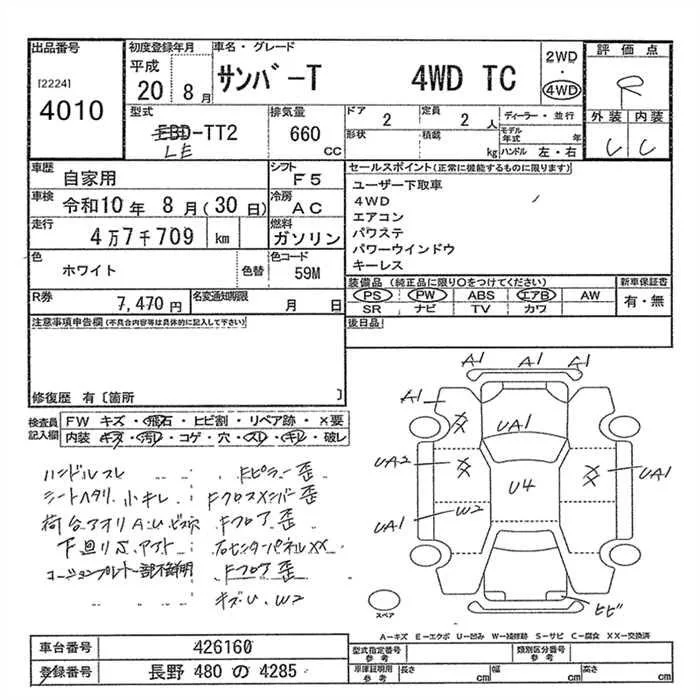 出品番号 初度登録年月 車名・グレード 2WD・4WD 評価点
[2224] 4010 平成20 8月 サンバーT 4WD TC R
型式 EBD-TT2 LE 排気量 660 CC
ドア 2 定員 2人 ディーラー・並行
形状 積載 kg モデル年式 年 ハンドル 左・右
外装 内装
C C
車歴 自家用 シフト F5
車検 令和10年 8月(30日) 冷房 AC
走行 4万7千709 km 燃料 ガソリン
色 ホワイト 色替 色コード 59M
R券 7,470円 名変通知期限 月 日
セールスポイント(正常に機能するものに限ります)
ユーザー下取車
4WD
エアコン
パワステ
パワーウインドウ
キーレス
装備品(純正品に限り〇をつけてください) 新車保証書
PS PW ABS エアB AW 有・無
SR ナビ TV カワ
後日品
注意事項申告欄(不具合内容等は具体的に記入して下さい)
修復歴 有〔箇所 〕
検査員記入欄 FW キズ・飛石・ヒビ割・リペア跡・×要
内装・キズ・汚レ・コゲ・穴・スレ・キレ・破レ
ハンドルスレ
シートヘタリ 小キレ
荷台アオリ A.U.
下廻りS.
コーションプレート一部不鮮明
Fピラー歪
Fクロスメンバー歪
Fフロア歪
右センターパネルXX
Fフロア歪
キズU、W2
A1 A1 A1
A1 XX UA1
UA2 XX U4 XX UA1
UA1 W2
スペア ヒビ
A-キズ E-エクボ U-凹み W-補修跡 S-サビ C-腐食 XX-交換済
車台番号 426160
登録番号 長野 480 の 4285
型式指定番号 参考 類別区分番号 参考
車庫証明用 参考 長さ cm 幅 cm 高さ cm